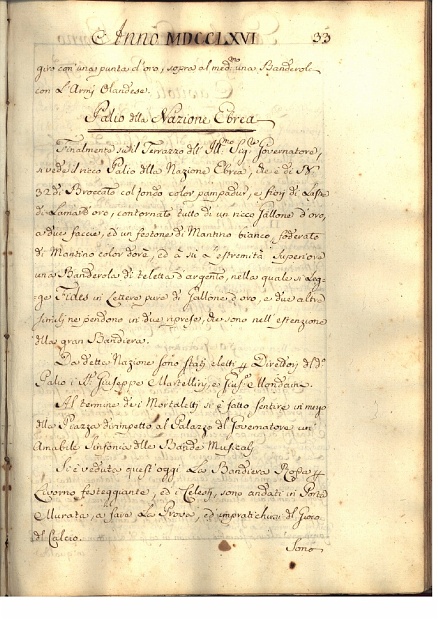 Anno MDCCLXVI 33
giro con una punta d'oro, sopra al med.mo una Banderola
con L'Armi Olandese.
Palio della Nazione Ebrea
Finalmente sul Terrazzo dell' Ill.mo Sig.re Governatore,
si vede il ricco Palio della Nazione Ebrea, che è di N.
32 di Broccato col fondo color pampadur, e fiori di
di Lama d'oro, contornato tutto di un ricco Gallone d'oro,
a due faccie, ed un festone di Mantino bianco, foderato
di Mantino color dorè, ed à all' estremità Superiore
una Banderola di teletta d'argento, nella quale si Leg-
ge Fides in Lettere pure di Gallone d'oro, e due altre
simili ne pendono in due riprese, che sono nell' estenzione
della gran Bandiera.
Da detta Nazione sono stati eletti Direttori del d.o
Palio i Giuseppe Martellini, e Mondain.
Al termine de i Mortaletti si è fatto sentire in mezzo
della Piazza dirimpetto al Palazzo del Governatore un'
Amabile Sinfonia delle Bande Musicali.
Si è veduta quest' oggi La Bandiera Rossa
Livorno festeggiante, ed i Celesti, sono andati in Porta
Murata, a fare La Prova, ed impratichirsi del Gioco
del Calcio.
Sono